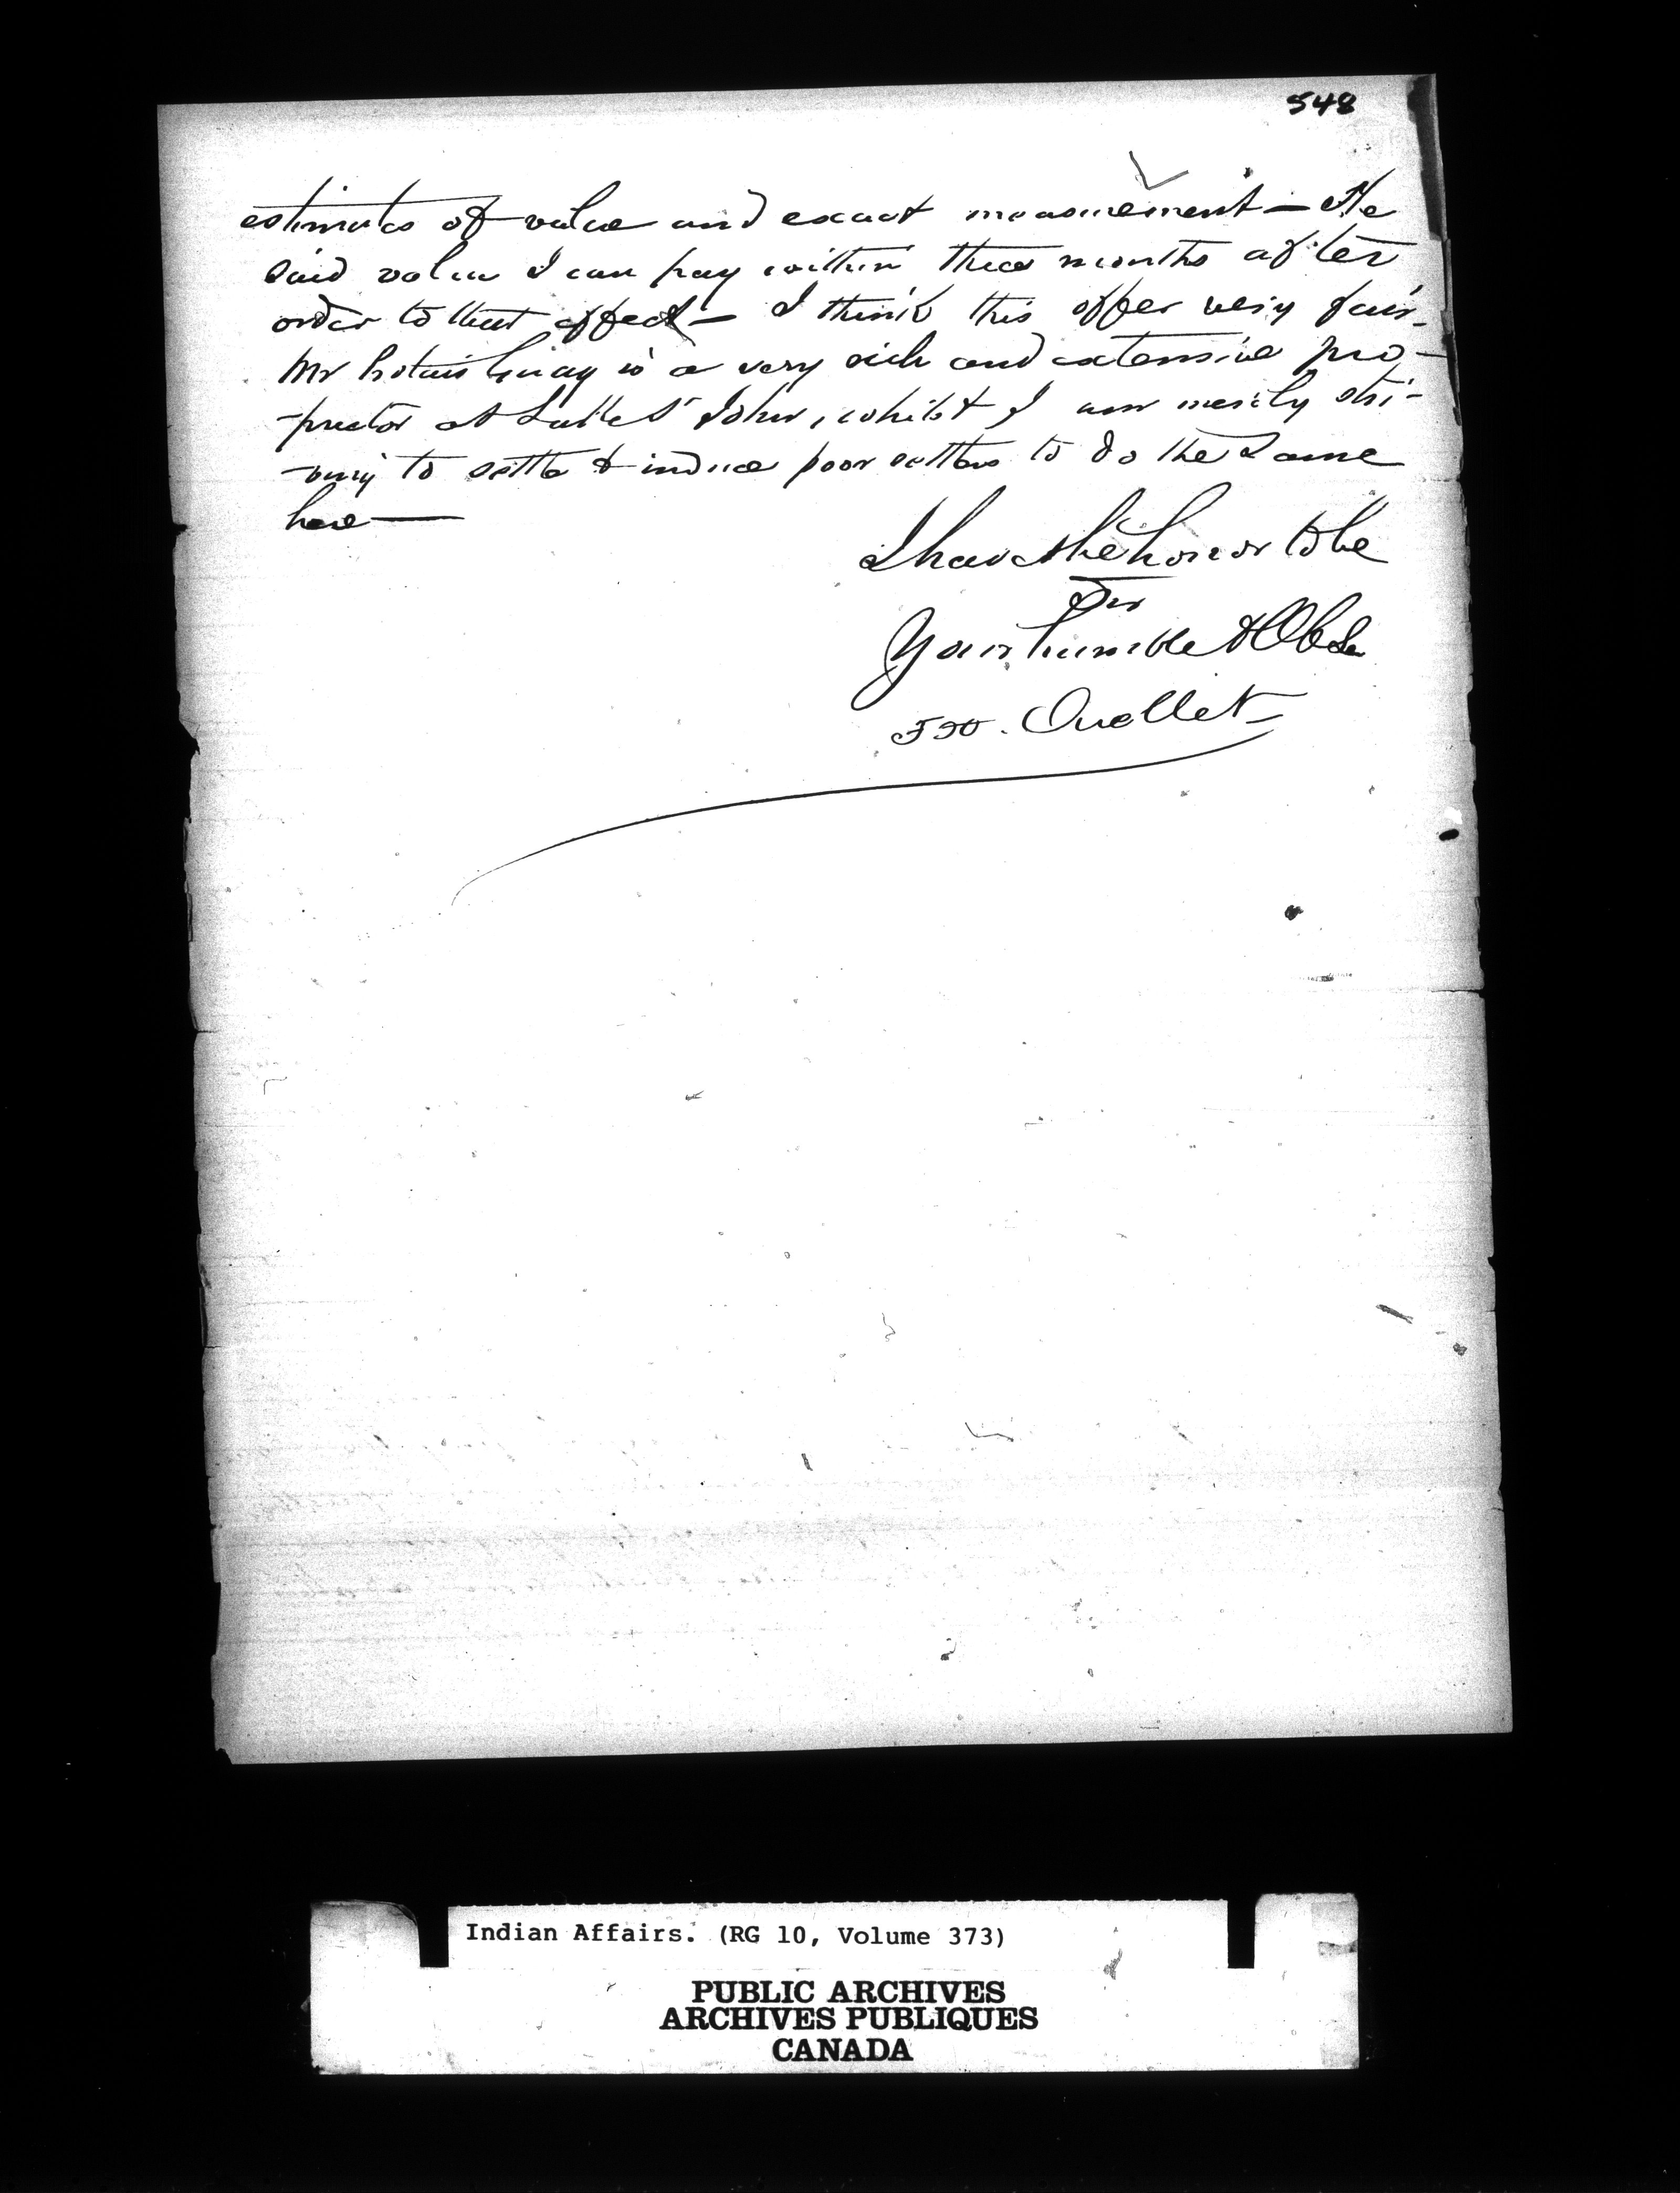 548
estimates of value and exact measurement — The
said value I can pay within three months after
order to that effect — I think this offer very fair.
Mr is a very rich and extensive pro-
-prietor at St John, whilst I am merily stri-
-ving to settle & induce poor settlers to do the same
here —
I have the honor to be
Sir
Your humble & Ob Se
Ouellet
Indian Affairs. (RG 10, Volume 373)
PUBLIC ARCHIVES
ARCHIVES PUBLIQUES
CANADA